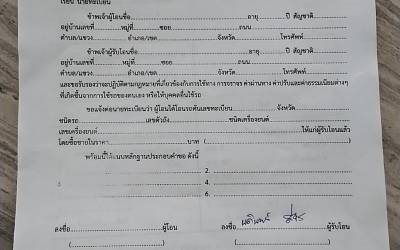 เรียน นายทะเบียน
ข้าพเจ้าผู้โอนชื่อ..........อายุ..........ปี สัญชาติ..........
อยู่บ้านเลขที่..........หมู่ที่..........ซอย..........ถนน..........
ตำบล/แขวง..........อำเภอ/เขต..........จังหวัด..........โทรศัพท์..........
ข้าพเจ้าผู้รับโอนชื่อ..........อายุ..........ปี สัญชาติ..........
อยู่บ้านเลขที่..........หมู่ที่..........ซอย..........ถนน..........
ตำบล/แขวง..........อำเภอ/เขต..........จังหวัด..........โทรศัพท์..........
และขอรับรองว่าจะปฏิบัติตามกฎหมายที่เกี่ยวข้องกับการใช้ทาง การจราจร ค่าผ่านทาง ค่าปรับและค่าธรรมเนียมต่างๆ
ที่เกิดขึ้นจากการใช้รถของตนเอง หรือให้บุคคลอื่นใช้รถ
ขอแจ้งต่อนายทะเบียนว่า ผู้โอนได้โอนรถคันเลขทะเบียน..........จังหวัด..........
ชนิดรถ..........เลขตัวถัง..........ชนิดเครื่องยนต์..........
เลขเครื่องยนต์..........ให้แก่ผู้รับโอนแล้ว
โดยซื้อขายในราคา..........บาท (..........)
พร้อมนี้ได้แนบหลักฐานประกอบคำขอ ดังนี้
2...........
3...........4...........
6...........
ลงชื่อ..........ผู้โอน ลงชื่อ..........ผู้รับโอน
(..........) (..........)